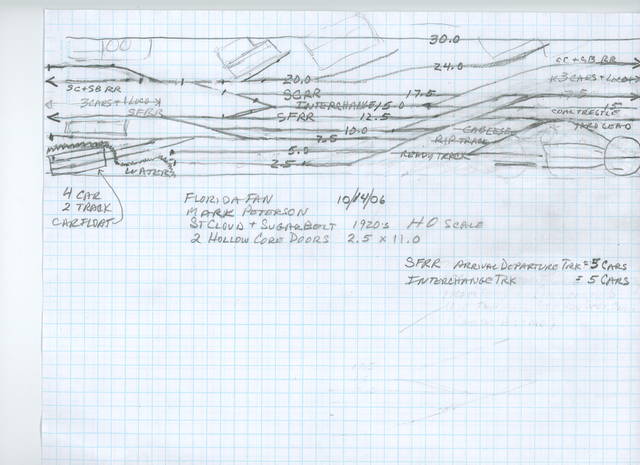 30.0
24.0
SC + SB RR
20.0
SC+SB RR
SCRR
17.5
3 CARS + 1 LOCO
3 CARS + 1 LOCO
INTERCHANGE
15.0
7.5
15
SFRR
SFRR
12.5
COAL TRESTLE
10.0
CABEESE
YARD LEAD
7.5
RIP TRACK
5.0
READY TRACK
WATERS
2.5
4 CAR
2 TRACK
CARFLOAT
FLORIDA FAN 10/14/06
MARK PETERSON
ST CLOUD + SUGARBELT 1920's HO SCALE
2 HOLLOW CORE DOORS 2.5 x 11.0
SFRR ARRIVAL DEPARTURE TRK = 5 CARS
INTERCHANGE TRK = 5 CARS